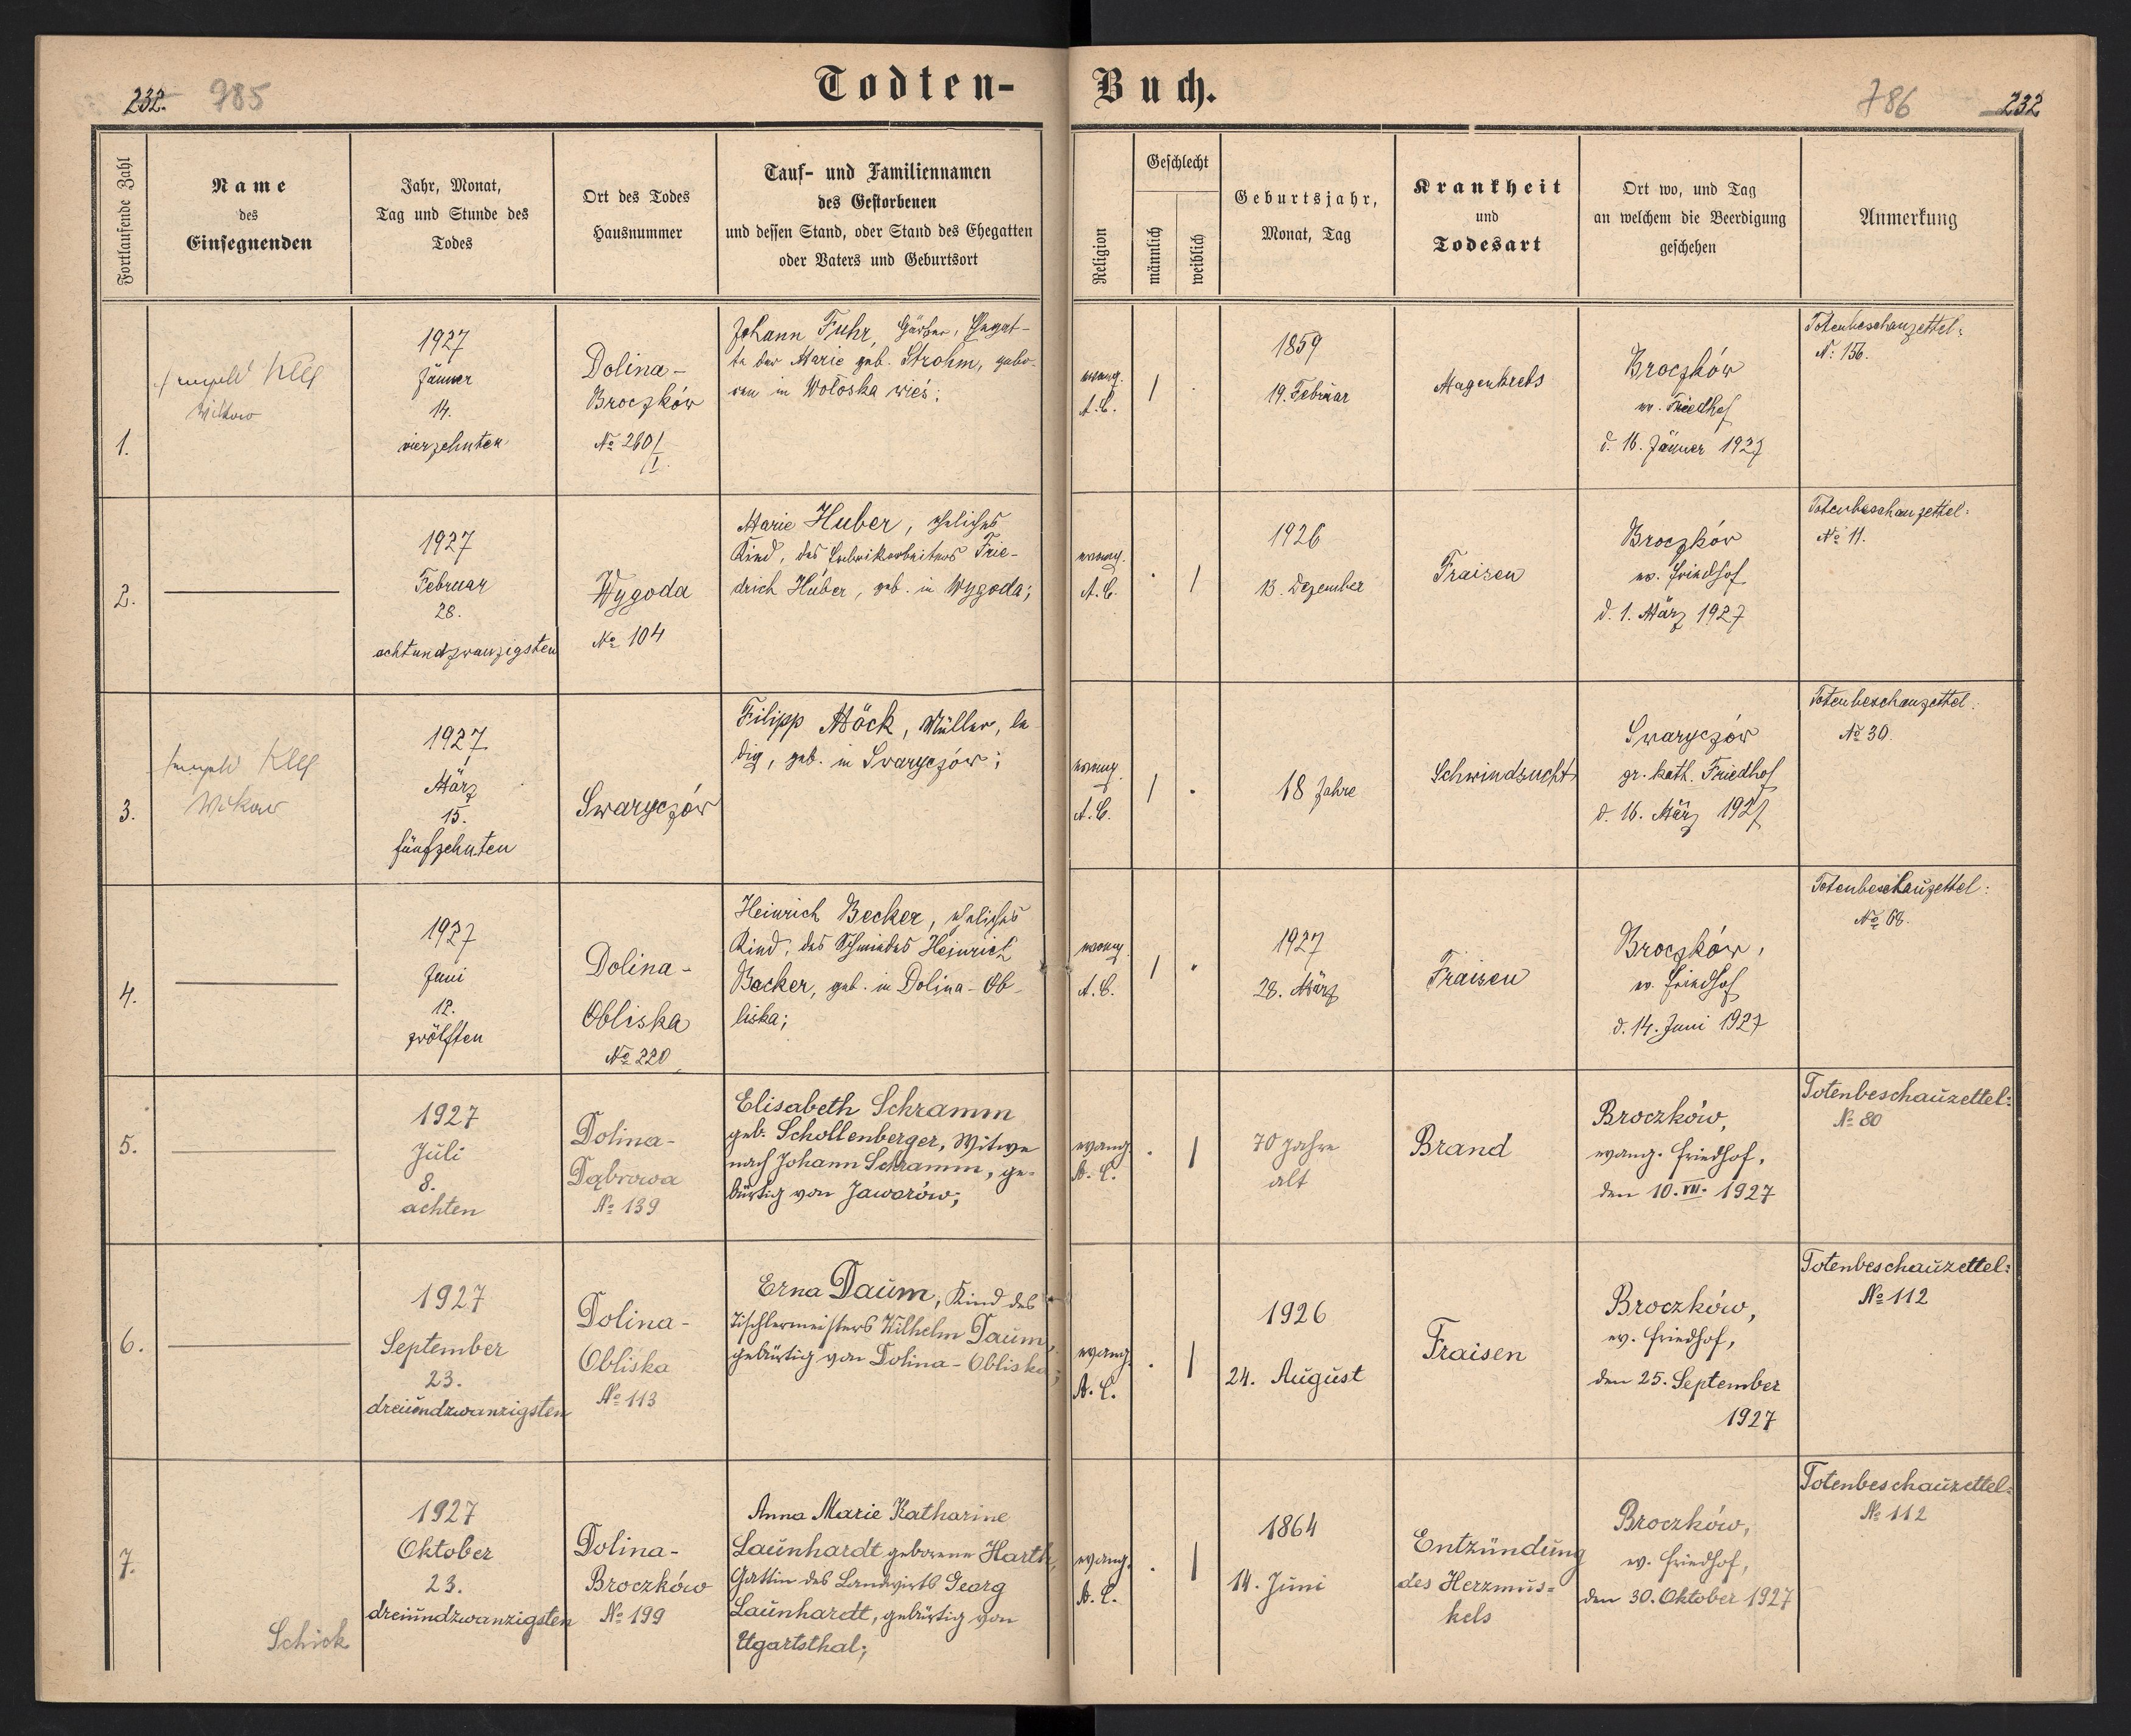 232. 785
Todten-Buch.
786 232
Fortlaufende Zahl
Name
des
Einsegnenden
Jahr, Monat,
Tag und Stunde des
Todes
Ort des Todes
Hausnummer
Tauf- und Familiennamen
des Gestorbenen
und dessen Stand, oder Stand des Ehegatten
oder Vaters und Geburtsort
Religion
Geschlecht
männlich
weiblich
Geburtsjahr,
Monat, Tag
Krankheit
und
Todesart
Ort wo, und Tag
an welchem die Beerdigung
geschehen
Anmerkung
1.
1927
Jänner
14.
vierzehnten
Dolina-
Broczków
№ 260/
Johann Fuhr, Gärber, Ehegat-
te der Marie geb. Strohm, gebo-
ren in Wołoska wieś;
evang.
A.C.
/
1859
19. Februar
Magenkrebs
Broczków
ev. Friedhof
d. 16. Jänner 1927
Totenbeschauzettel:
N: 156.
2.
1927
Februar
28.
achtundzwanzigsten
Wygoda
№ 104
Marie Huber, eheliches
Kind, des Fabrikarbeiters Frie-
drich Huber, geb. in Wygoda;
evang.
A.C.
. /
1926
13. Dezember
Fraisen
Broczków
ev. Friedhof
d. 1. März 1927
Totenbeschauzettel:
№ 11.
3.
1927
März
15.
fünfzehnten
Swaryczów
Filipp Möck, Müller, le-
dig, geb. in Swaryczów;
evang.
A.C.
/ .
18 Jahre
Schwindsucht
Swaryczów
gr. kath. Friedhof
d. 16. März 1927
Totenbeschauzettel:
№ 30.
4.
1927
Juni
12.
zwölften
Dolina-
Obliska
№ 220
Heinrich Becker, eheliches
Kind, des Schmiedes Heinrich
Becker, geb. in Dolina-Ob-
liska;
evang.
A.C.
/ .
1927
28. März
Fraisen
Broczków,
ev. Friedhof
d. 14. Juni 1927
Totenbeschauzettel:
№ 68.
5.
1927
Juli
8.
achten
Dolina-
Dąbrowa
№ 139
Elisabeth Schramm
geb. Schollenberger, Witwe
nach Johann Schramm, ge-
bürtig von Jaworów;
evang.
A.C.
. /
70 Jahre
alt
Brand
Broczków,
evang. Friedhof,
den 10. VII. 1927
Totenbeschauzettel:
№ 80
6.
1927
September
23.
dreiundzwanzigsten
Dolina-
Obliska
№ 113
Erna Daum, Kind des
Tischlermeisters Wilhelm Daum,
gebürtig von Dolina-Obliska;
evang.
A.C.
. /
1926
24. August
Fraisen
Broczków,
ev. Friedhof,
den 25. September
1927
Totenbeschauzettel:
№ 112
7.
Schick
1927
Oktober
23.
dreiundzwanzigsten
Dolina-
Broczków
№ 199
Anna Marie Katharine
Launhardt geborene Harth,
Gattin des Landwirts Georg
Launhardt, gebürtig von
Ugartsthal;
evang.
A.C.
. /
1864
14. Juni
Entzündung
des Herzmus-
kels
Broczków,
ev. Friedhof,
den 30. Oktober 1927
Totenbeschauzettel:
№ 112